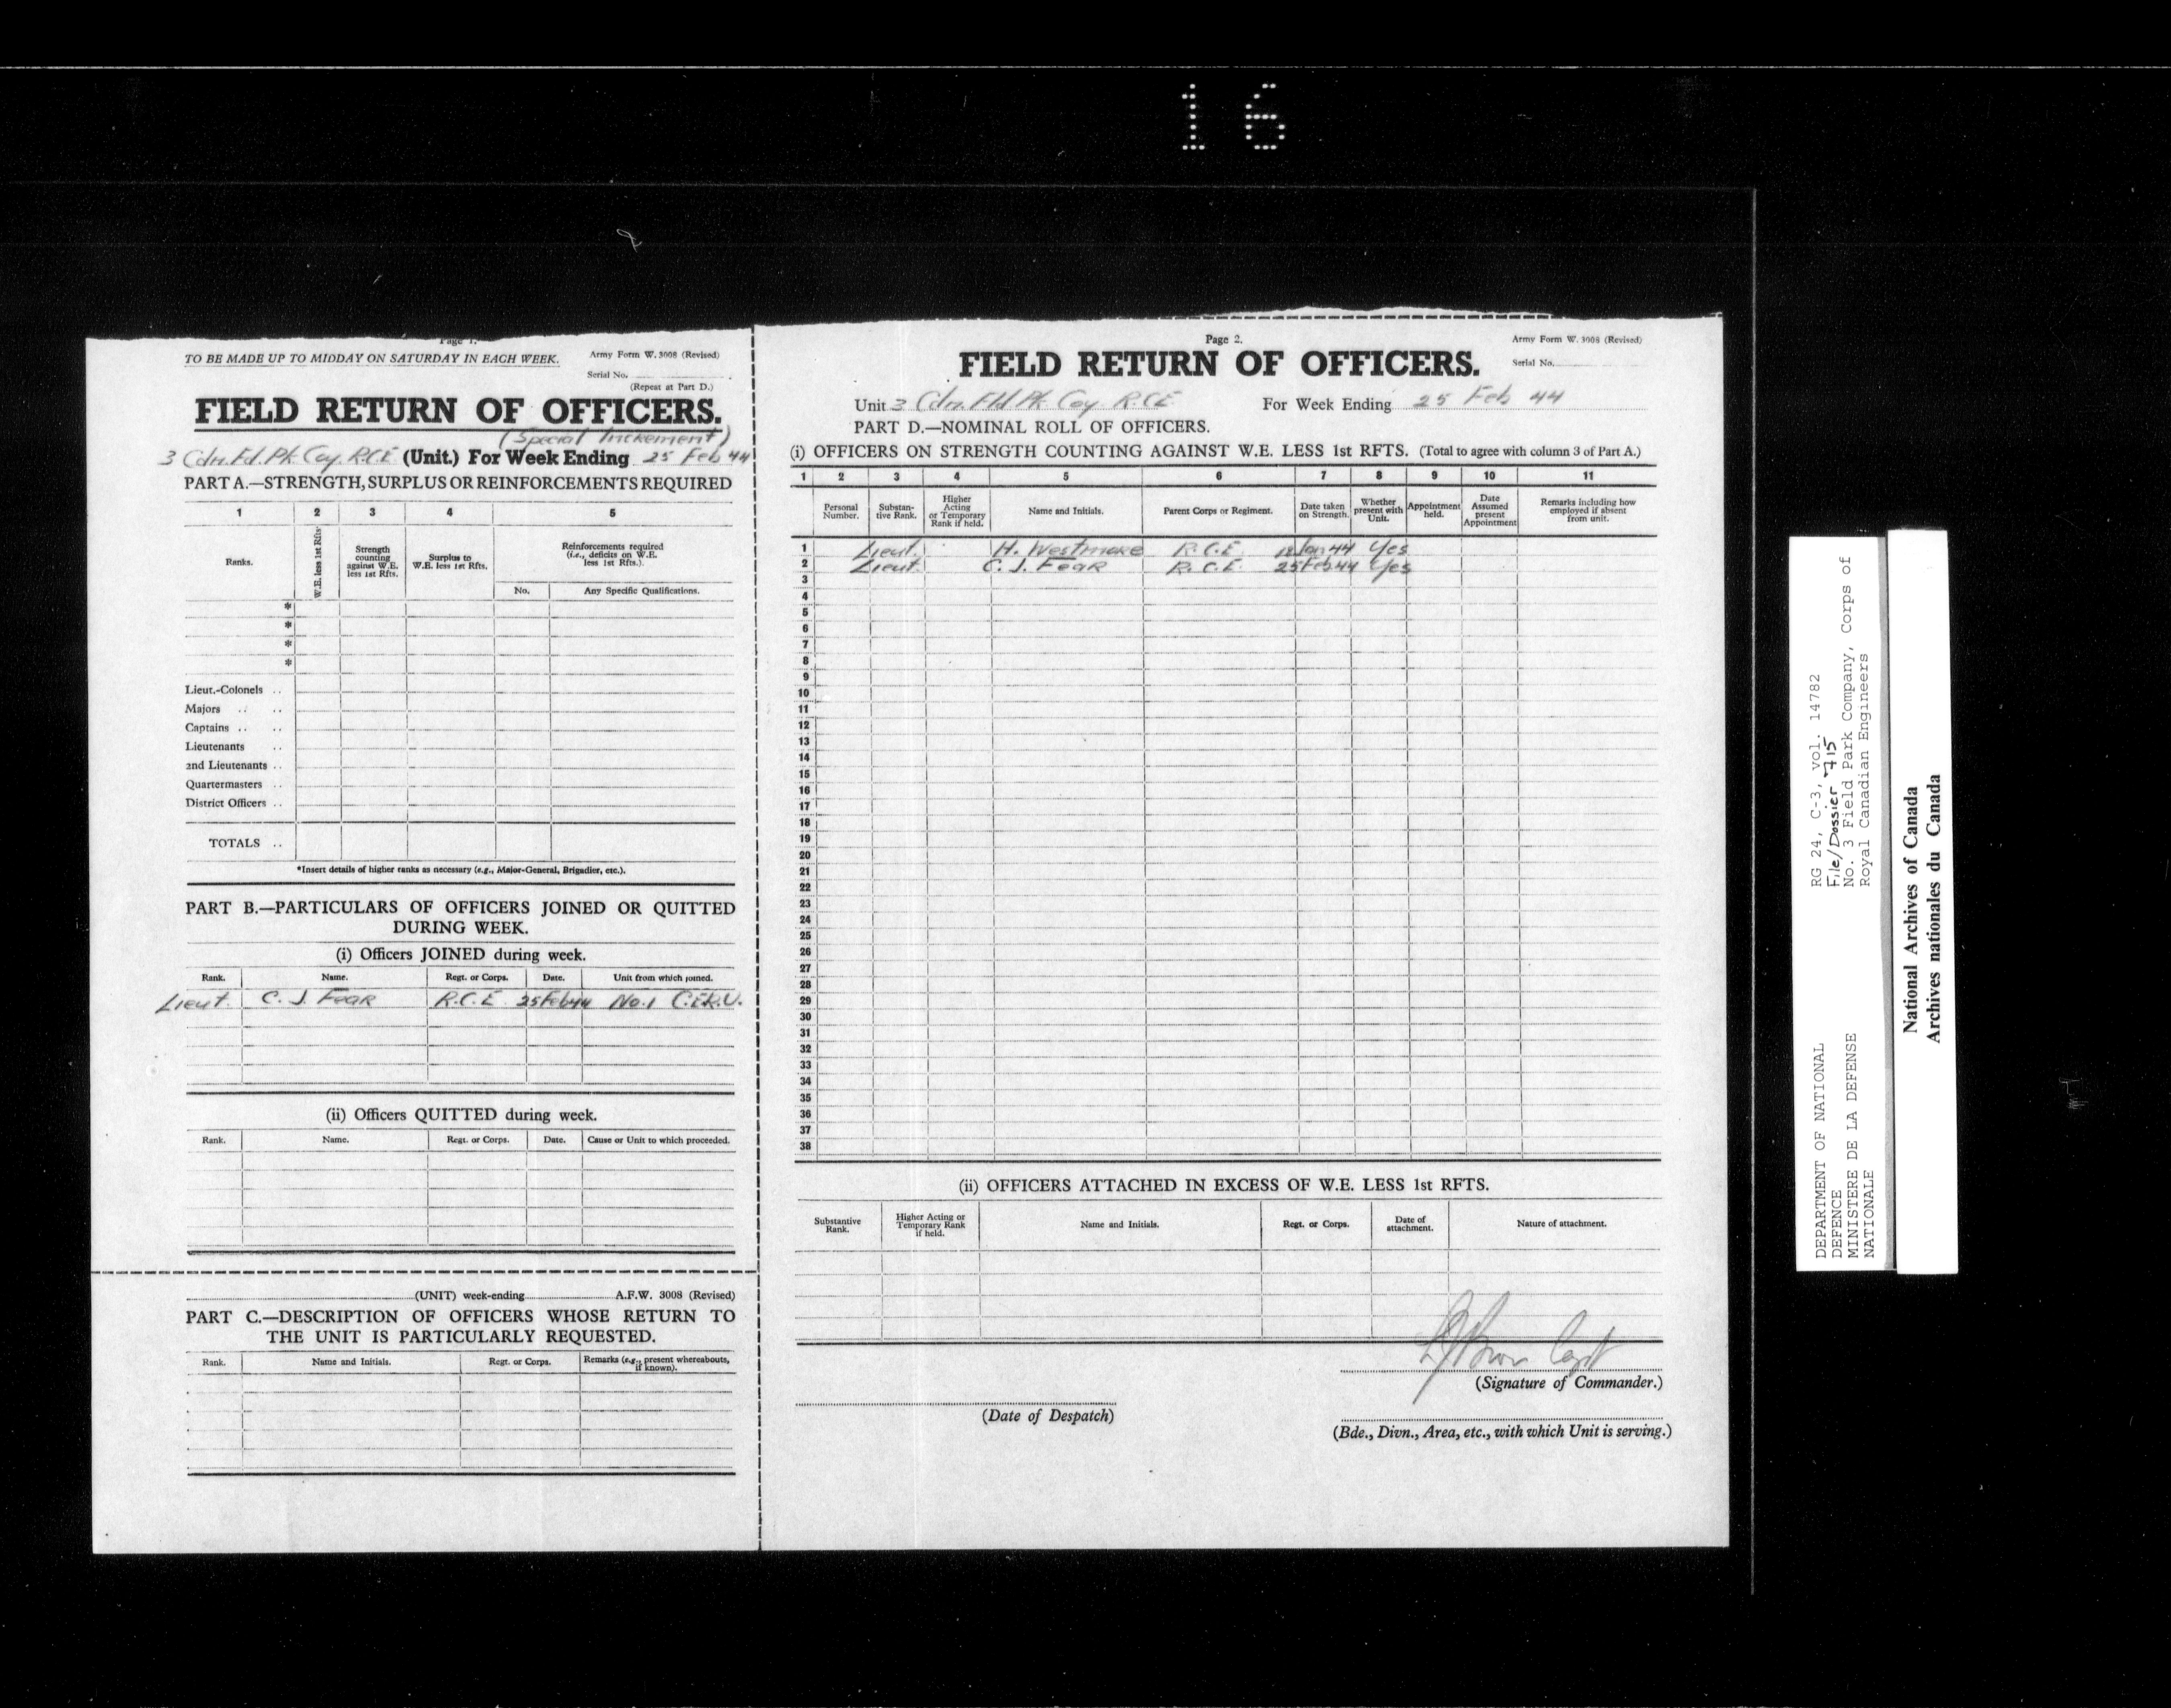 16
Page 1.
TO BE MADE UP TO MIDDAY ON SATURDAY IN EACH WEEK.
Army Form W. 3008 (Revised)
Serial No.
(Repeat at Part D.)
FIELD RETURN OF OFFICERS.
(Special Increment)
3 Cdn. Fd. Pk. Coy. R.C.E (Unit.) For Week Ending 25 Feb 44
PART A.—STRENGTH, SURPLUS OR REINFORCEMENTS REQUIRED
1 2 3 4 5
Ranks.
W.E. less 1st Rfts.
Strength counting against W.E. less 1st Rfts.
Surplus to W.E. less 1st Rfts.
Reinforcements required (i.e., deficits on W.E. less 1st Rfts.).
No. Any Specific Qualifications.
*
*
*
*
Lieut.-Colonels ..
Majors .. ..
Captains .. ..
Lieutenants ..
2nd Lieutenants ..
Quartermasters ..
District Officers ..
TOTALS ..
*Insert details of higher ranks as necessary (e.g., Major-General, Brigadier, etc.).
PART B.—PARTICULARS OF OFFICERS JOINED OR QUITTED
DURING WEEK.
(i) Officers JOINED during week.
Rank. Name. Regt. or Corps. Date. Unit from which joined.
Lieut. C. J. Fear R.C.E 25 Feb 44 No. 1 C.E.R.U.
(ii) Officers QUITTED during week.
Rank. Name. Regt. or Corps. Date. Cause or Unit to which proceeded.
(UNIT) week-ending A.F.W. 3008 (Revised)
PART C.—DESCRIPTION OF OFFICERS WHOSE RETURN TO
THE UNIT IS PARTICULARLY REQUESTED.
Rank. Name and Initials. Regt. or Corps. Remarks (e.g., present whereabouts, if known).
Page 2.
Army Form W. 3008 (Revised)
FIELD RETURN OF OFFICERS.
Serial No.
Unit 3 Cdn. Fld. Pk. Coy. R.C.E. For Week Ending 25 Feb 44
PART D.—NOMINAL ROLL OF OFFICERS.
(i) OFFICERS ON STRENGTH COUNTING AGAINST W.E. LESS 1st RFTS. (Total to agree with column 3 of Part A.)
1 2 3 4 5 6 7 8 9 10 11
Personal Number.
Substantive Rank.
Higher Acting or Temporary Rank if held.
Name and Initials.
Parent Corps or Regiment.
Date taken on Strength.
Whether present with Unit.
Appointment held.
Date Assumed present Appointment
Remarks including how employed if absent from unit.
1 Lieut. H. Westmore R.C.E. Jan 44 Yes
2 Lieut. C. J. Fear R.C.E. 25 Feb 44 Yes
3
4
5
6
7
8
9
10
11
12
13
14
15
16
17
18
19
20
21
22
23
24
25
26
27
28
29
30
31
32
33
34
35
36
37
38
(ii) OFFICERS ATTACHED IN EXCESS OF W.E. LESS 1st RFTS.
Substantive Rank.
Higher Acting or Temporary Rank if held.
Name and Initials.
Regt. or Corps.
Date of attachment.
Nature of attachment.
Capt
(Signature of Commander.)
(Date of Despatch)
(Bde., Divn., Area, etc., with which Unit is serving.)
DEPARTMENT OF NATIONAL
DEFENCE
MINISTERE DE LA DEFENSE
NATIONALE
RG 24, C-3, vol. 14782
File/Dossier 715
No. 3 Field Park Company, Corps of
Royal Canadian Engineers
National Archives of Canada
Archives nationales du Canada